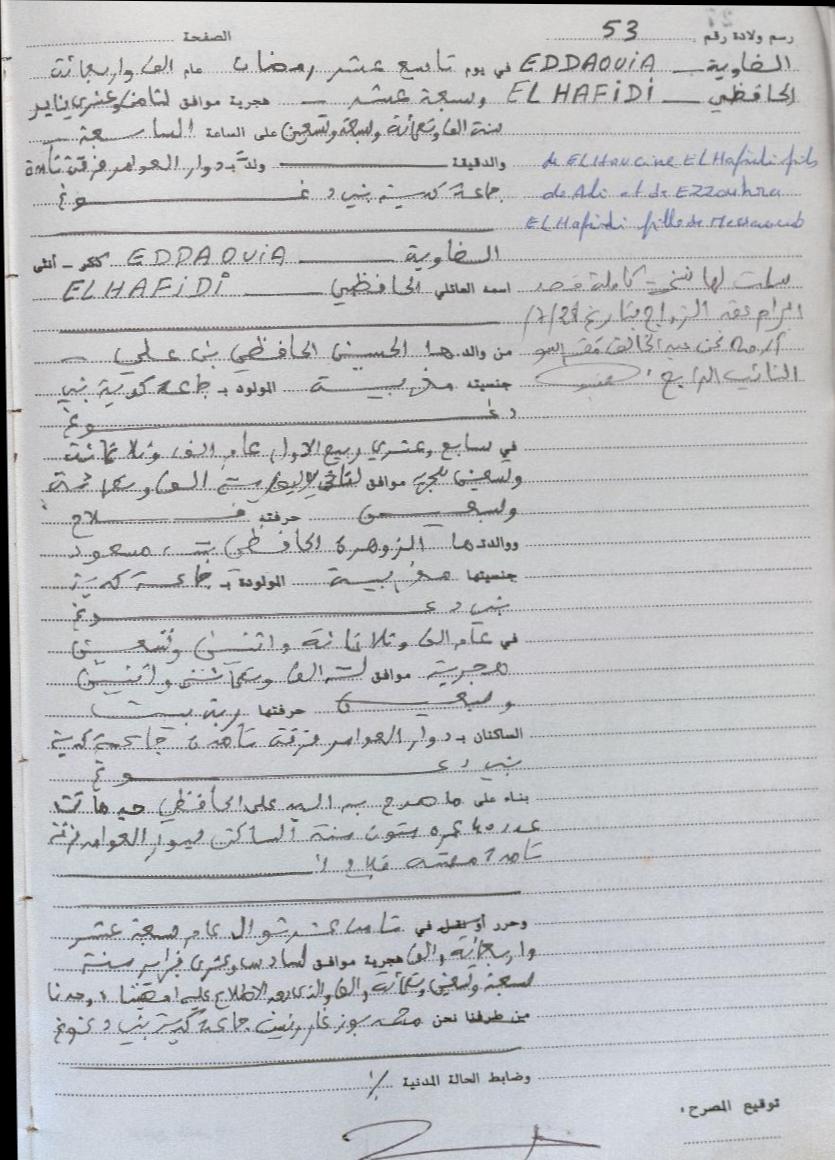 رسم ولادة رقم 53 الصفحة
الضاوية EDDAOUIA في يوم تاسع عشر رمضان عام الف واربعمائة
الحافظي EL HAFIDI وسبعة عشر هجرية موافق لثامن وعشري يناير
سنة الف وتسعمائة وسبعة وتسعين على الساعة السابعة
de EL Houcine EL Hafidi fils والدقيقة ولدت بـ دوار العوامر فرقة
de Ali et de EZZouhra جماعة كدية بني دغوغ
EL Hafidi fille de Messaoud
الضاوية EDDAOUIA ذكر - أنثى
اسمه العائلي الحافظي ELHAFIDI
سلمت لها نسخة كاملة قصد
ابرام عقد الزواج بتاريخ
من والدها الحسين الحافظي بن علي
جنسيته مغربية المولود بـ جماعة كدية بني
النائب الرابع
دغوغ
في سابع وعشري ربيع الاول عام الف وثلاثمائة
وتسعين هجرية موافق لثاني يونيو سنة الف وتسعمائة
وسبعين حرفته فلاح
ووالدتها الزوهرة الحافظي بنت مسعود
جنسيتها مغربية المولودة بـ جماعة كدية
بني دغوغ
في عام الف وثلاثمائة واثنين وتسعين
هجرية موافق لسنة الف وتسعمائة واثنين
وسبعين حرفتها ربة بيت
الساكنان بـ دوار العوامر فرقة جماعة كدية
بني دغوغ
بناء على ما صرح به السيد علي الحافظي
عمره ستون سنة الساكن بدوار العوامر فرقة
مهنته فلاح
وحرر أو نقل في ثامن عشر شوال عام سبعة عشر
واربعمائة والف هجرية موافق لسادس وعشري فبراير سنة
سبعة وتسعين وتسعمائة والف والذي بعد الاطلاع عليه امضيناه وحدنا
من طرفنا نحن محمد رئيس جماعة كدية بني دغوغ
وضابط الحالة المدنية
توقيع المصرح: